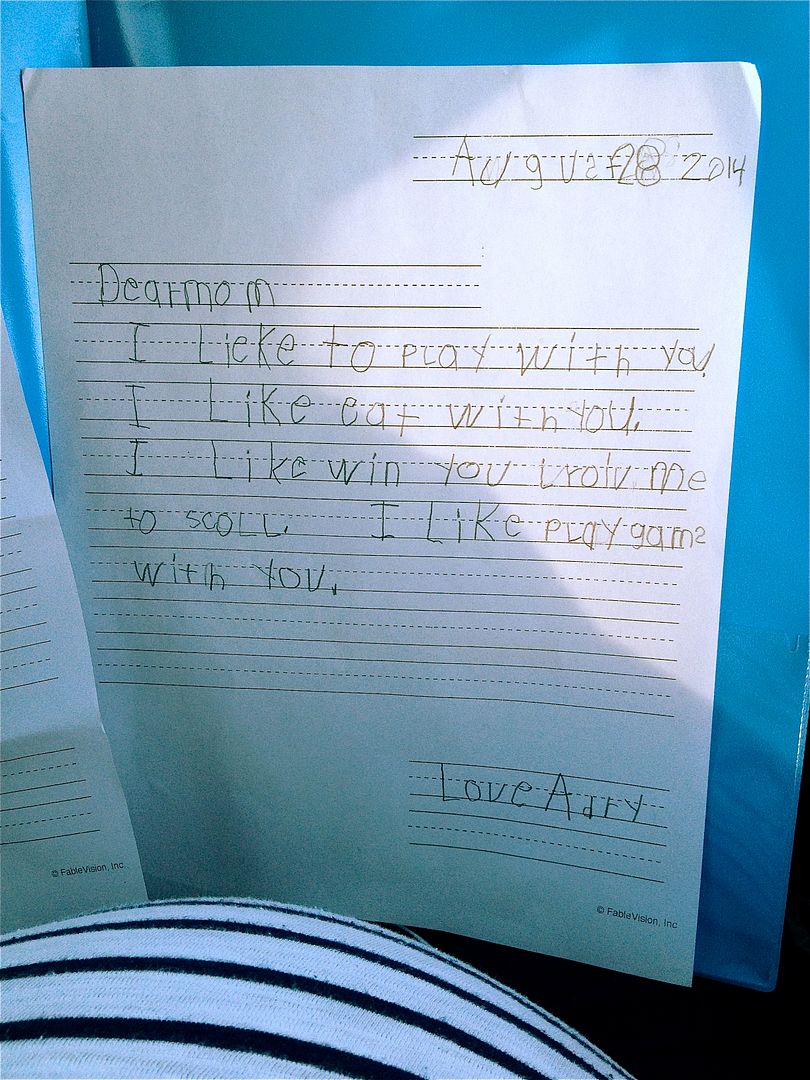 August 28 2014
Dear mom
I Lieke to play with you.
I Like eat with you.
I Like win you me
to scoll. I Like play gams
with you.
Love Adry
© FableVision, Inc.
© FableVision, Inc